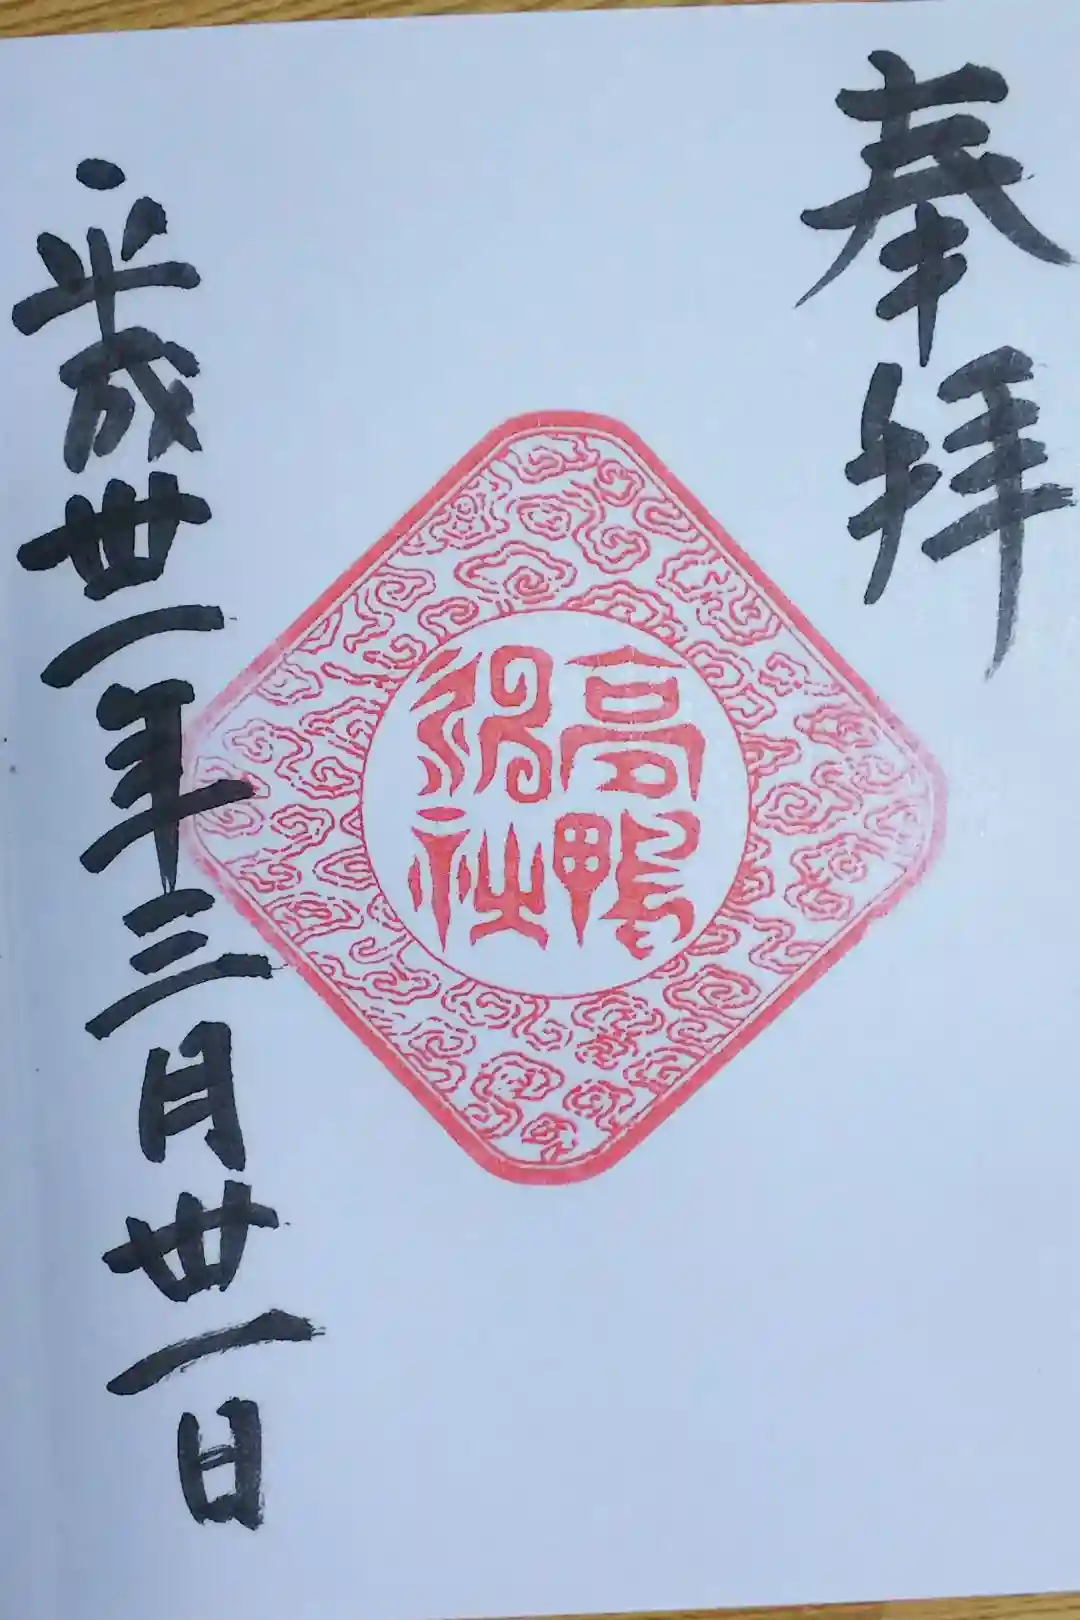 奉拝
高鴨
神社
平成丗一年三月丗一日